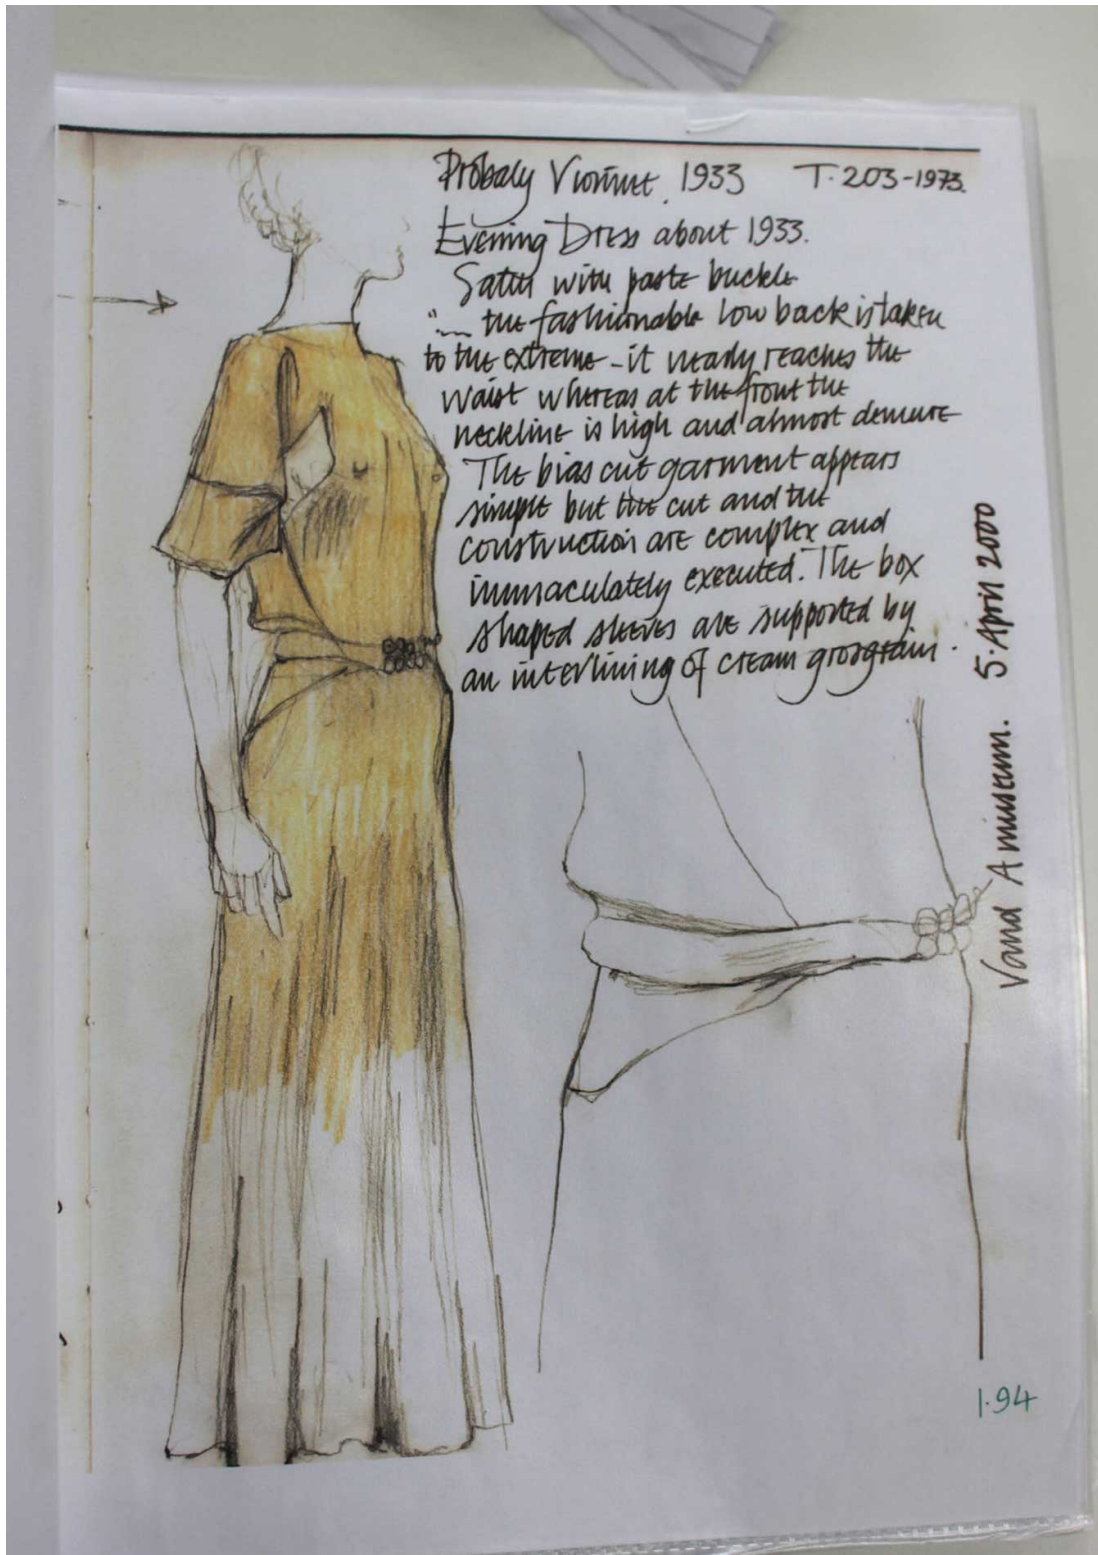 Probaly Vionnet. 1933 T.203-1973.
Evening Dress about 1933.
Satin with paste buckle
"... the fashionable low back is taken
to the extreme - it nearly reaches the
waist whereas at the front the
neckline is high and almost demure
The bias cut garment appears
simple but the cut and the
construction are complex and
immaculately executed. The box
shaped sleeves are supported by
an interlining of cream grosgrain.
V and A museum. 5. April 2000
1.94